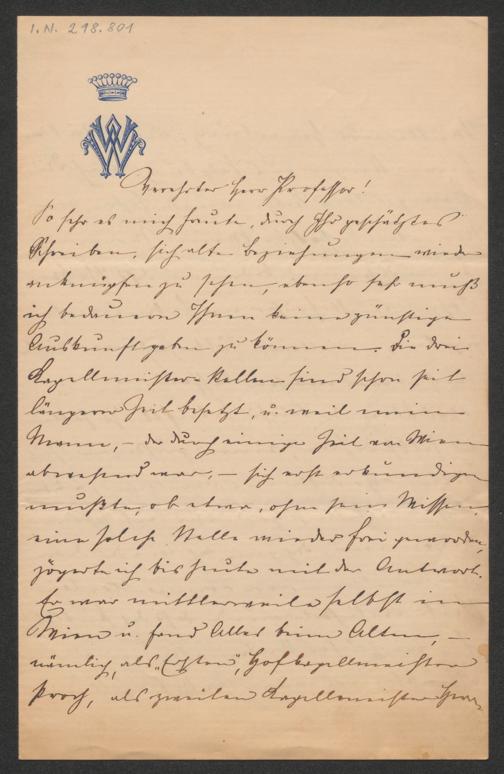 I.N. 218.801
W
Verehrter Herr Professor!
So sehr es mich freute, durch Ihr geschätztes
Schreiben, sich alte Beziehungen wieder
anknüpfen zu sehen, ebenso sehr muß
ich bedauern Ihnen keine günstige
Auskunft geben zu können. Die drei
Kapellmeister Stellen sind schon seit
längerer Zeit besetzt, u. weil mein
Mann, – der durch einige Zeit von Wien
abwesend war, – sich erst erkundigen
mußte, ob etwa, ohne sein Wissen,
eine solche Stelle wieder frei geworden,
zögerte ich bis heute mit der Antwort.
Er war mittlerweile selbst in
Wien u. fand Alles beim Alten, –
nämlich, als „Ersten", Hofkapellmeister
Proch, als zweiten Kapellmeister Herrn